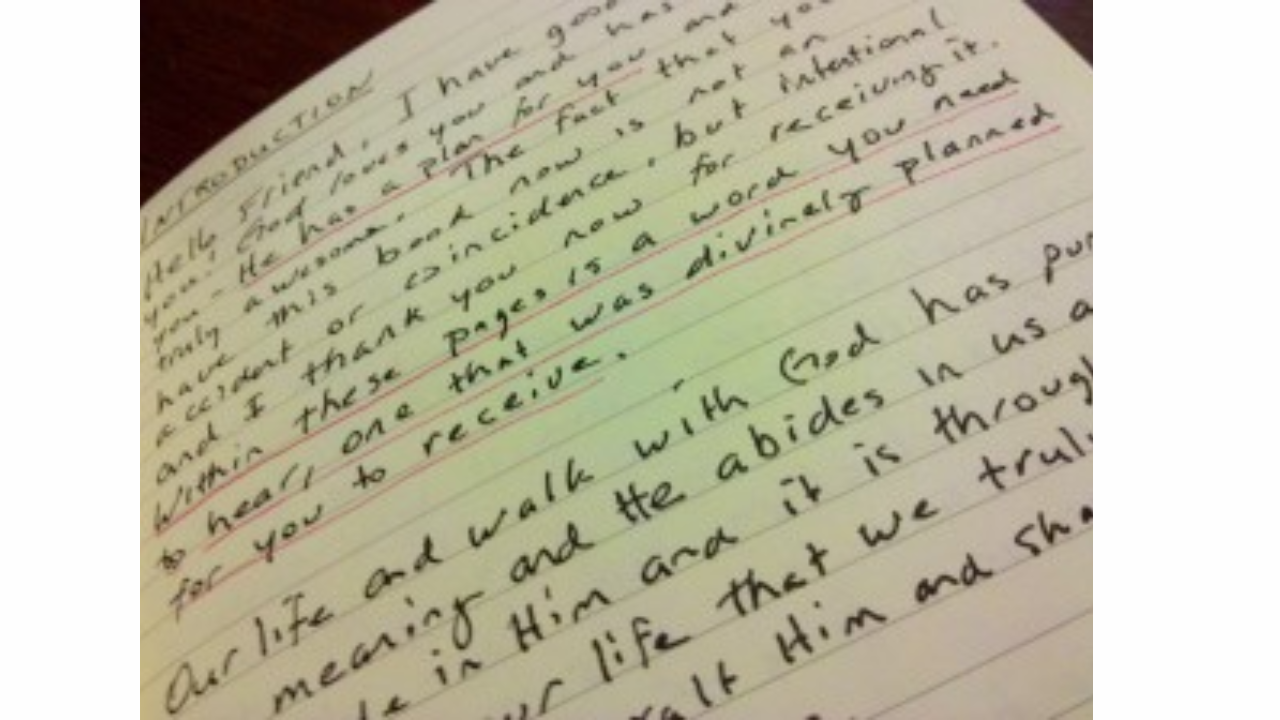 INTRODUCTION
Hello Friend, I have good
you! God loves you and has
you - He has a plan for you and
truly awesome. The fact that you
have this book now is not an
accident or coincidence, but intentional
and I thank you now for receiving it.
Within these pages is a word you need
to hear, one that was divinely planned
for you to receive.
Our life and walk with God has pur
meaning and He abides in us a
in Him and it is throug
life that we trul
Him and sha